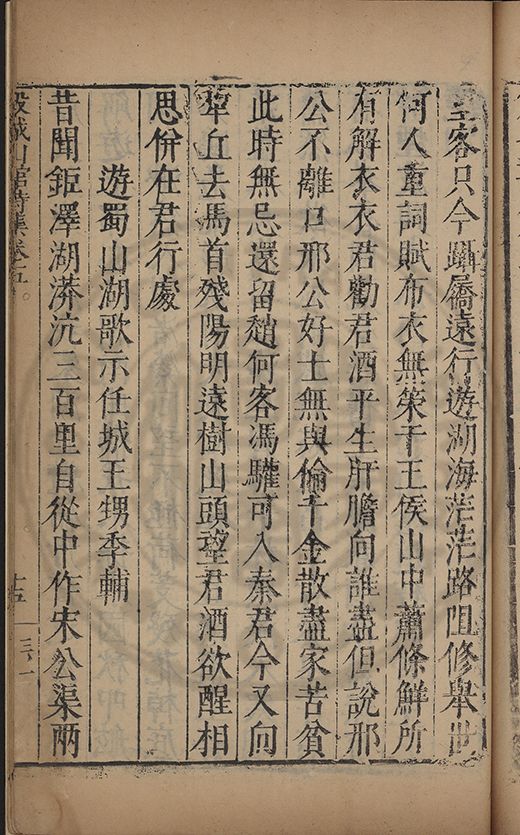 客只今躡屩遠行遊湖海茫茫路阻修舉世
何人重詞賦布衣無策干王侯山中蕭條鮮所
有解衣衣君勸君酒平生肝膽向誰盡但說邢
公不離口邢公好士無與倫千金散盡家苦貧
此時無忌還留趙何客馮驩可入秦君今又向
犂丘去馬首殘陽明遠樹山頭望君酒欲醒相
思併在君行處
遊蜀山湖歌示任城王甥季輔
昔聞鉅澤湖漭沆三百里自從中作宋公渠兩
穀城山館詩集卷之五
十五